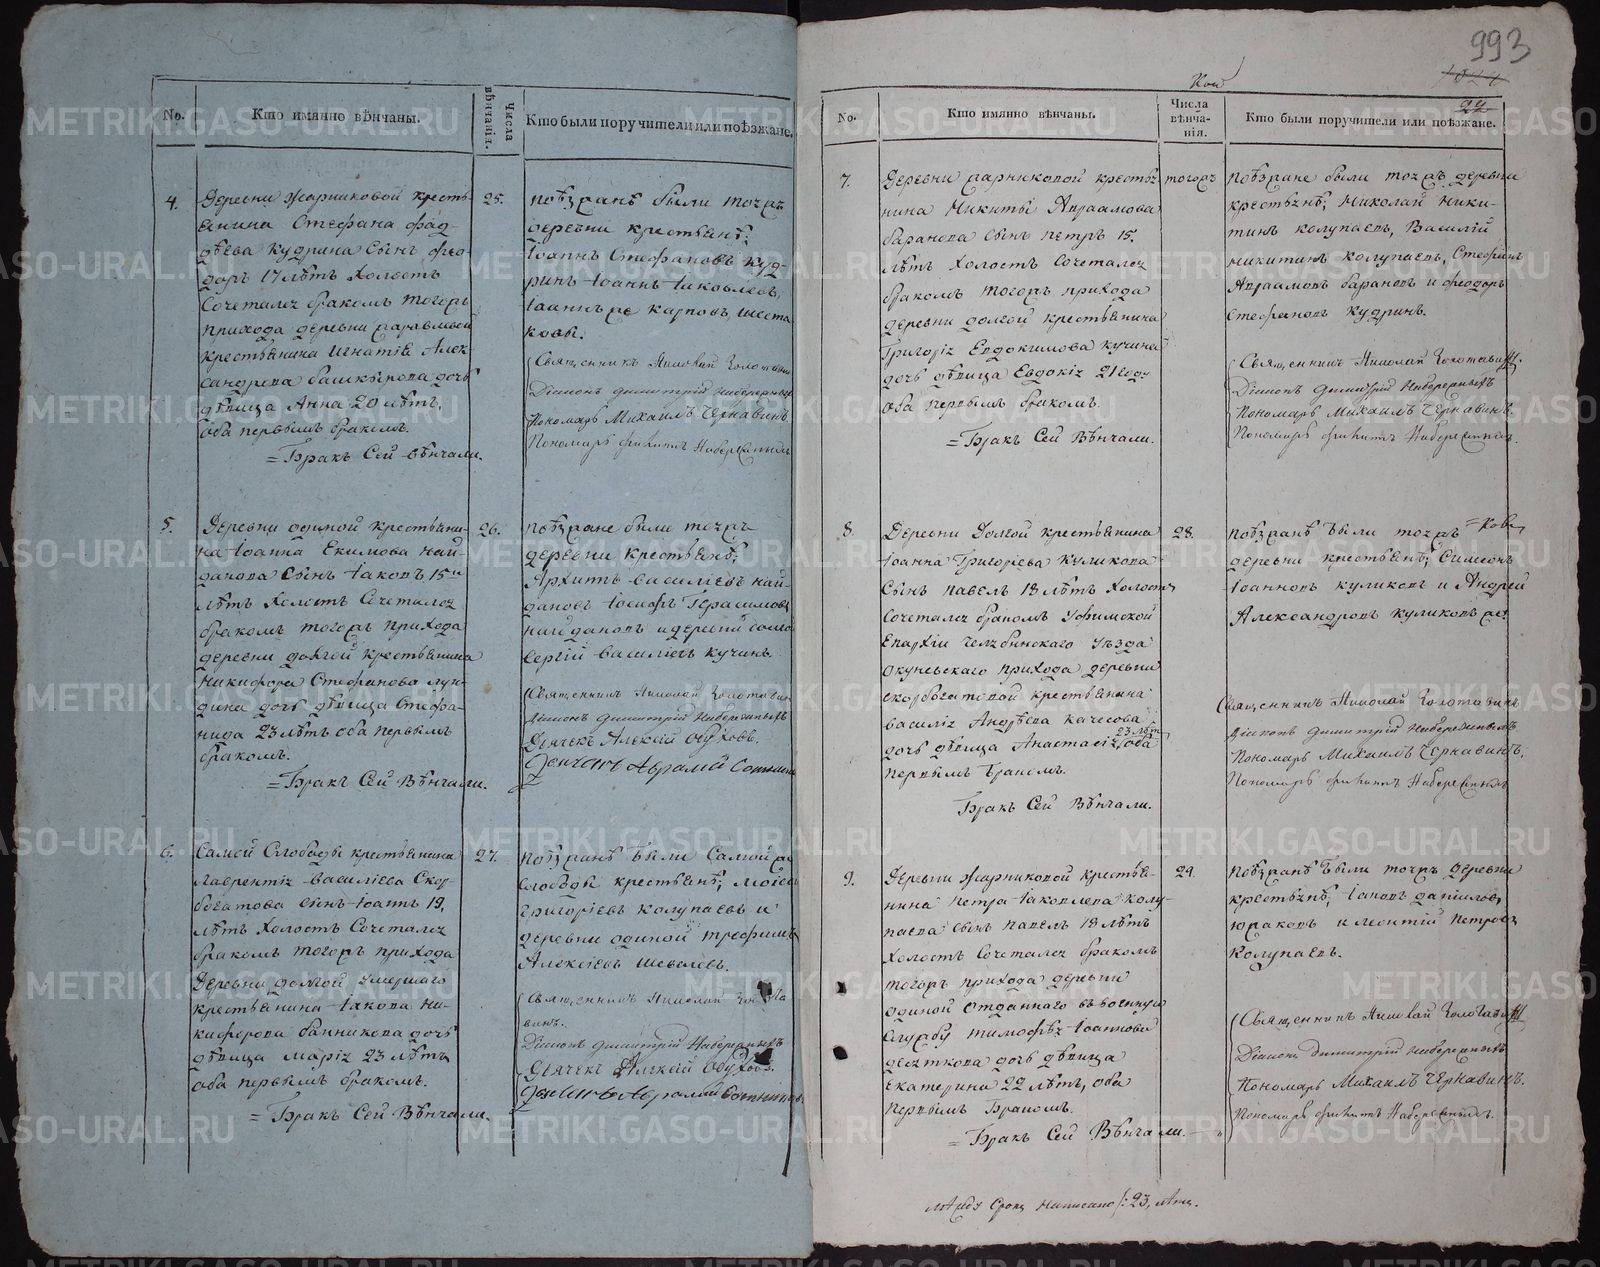 No.
Кто имянно вѣнчаны.
Числа вѣнчанія.
Кто были поручители или поѣзжане.
4.
Деревни Жарниковой кресть-
янина Стефана Фад-
дѣева Кудрина сынъ Фео-
доръ 17 лѣтъ холостъ
Сочетался бракомъ тогожъ
прихода деревни
крестьянина Игнатія Алек-
сандрова Башкырова дочь
дѣвица Анна 20 лѣтъ,
оба первымъ бракомъ.
= Бракъ Сей вѣнчали.
25.
поѣзжанѣ были тояжъ
деревни крестьянѣ;
Іоаннъ Стефановъ Куд-
ринъ Іоаннъ Іаковлевъ,
Іоаннъ же Карповъ, Шеста-
ковы.
Священникъ Николай
Діаконъ Димитрій Набережныхъ
Пономарь Михаилъ Чернавинъ
Пономарь Филиппъ Набережныхъ
5.
Деревни одиной крестьяни-
на Іоанна Екимова Най-
данова сынъ Іаковъ 15
лѣтъ холостъ Сочетался
бракомъ тогожъ прихода
деревни долгой крестьянина
Никифора Стефанова Лун-
дина дочь дѣвица Стефа-
нида 23 лѣтъ оба первымъ
бракомъ.
= Бракъ Сей Вѣнчали.
26.
поѣзжане были тояжъ
деревни крестьянѣ;
Архипъ Василіевъ Най-
дановъ Іосифъ Герасимовъ
Найдановъ и деревни
Сергій Василіевъ Кучинъ
Священникъ Николай
Діаконъ Димитрій Набережныхъ
Дьячекъ Алексій Обуховъ.
Авраамій
6.
Самой Слободы крестьянина
Лаврентія Василіева Скор-
богатова сынъ Іоаннъ 19,
лѣтъ холостъ Сочетался
бракомъ тогожъ прихода
Деревни долгой умершаго
крестьянина Іакова Ни-
кифорова Банникова дочь
дѣвица Марія 23 лѣтъ
оба первымъ бракомъ.
= Бракъ Сей Вѣнчали.
27.
поѣзжанѣ были Самой же
Слободы крестьянѣ; Моисей
Григоріевъ Колупаевъ и
деревни одиной Трофимъ
Алексіевъ Шевелевъ.
Священникъ Николай
винъ.
Діаконъ Димитрій Набережныхъ
Дьячекъ Алексій Обуховъ.
Авраамій
993
24
No.
Кто имянно вѣнчаны.
Числа вѣнчанія.
Кто были поручители или поѣзжане.
7.
Деревни Жарниковой крестья-
нина Никиты Авраамова
Баранова сынъ Петръ 15.
лѣтъ холостъ Сочетался
бракомъ тогожъ прихода
деревни долгой крестьянина
Григорія Евдокимова Кучина
дочь дѣвица Евдокія 21 году
оба первымъ бракомъ.
= Бракъ Сей Вѣнчали.
тогожъ
поѣзжане были тояжъ деревни
крестьянѣ; Николай Ники-
тинъ Колупаевъ, Василій
Никитинъ Колупаевъ, Стефанъ
Авраамовъ Барановъ и Феодоръ
Стефановъ Кудринъ.
Священникъ Николай
Діаконъ Димитрій Набережныхъ
Пономарь Михаилъ Чернавинъ.
Пономарь Филиппъ Набережныхъ.
8.
Деревни Долгой крестьянина
Іоанна Григоріева Куликова
сынъ Павелъ 18 лѣтъ холостъ
Сочетался бракомъ Уфимской
Епархіи Челябинскаго уѣзда
Окуневскаго прихода деревни
Скоробогатовой крестьянина
Василія Андрѣева Качесова
дочь дѣвица Анастасія 23 лѣтъ оба
первымъ бракомъ.
Бракъ Сей Вѣнчали.
28.
поѣзжанѣ были тояжъ
деревни крестьянѣ; Симеонъ
Іоанновъ Куликовъ и Андрей
Александровъ Куликовъ же.
Священникъ Николай
Діаконъ Димитрій Набережныхъ
Пономарь Михаилъ Чернавинъ.
Пономарь Филиппъ Набережныхъ
9.
Деревни Жарниковой крестья-
нина Петра Іаковлева Колу-
паева сынъ Павелъ 18 лѣтъ
холостъ Сочетался бракомъ
тогожъ прихода деревни
одиной отданнаго въ военную
службу Тимофѣя Іоаннова
Десяткова дочь дѣвица
Екатерина 22 лѣтъ, оба
первымъ бракомъ.
= Бракъ Сей Вѣнчали.
29.
поѣзжанѣ были тояжъ деревни
крестьянѣ; Іаковъ Даніиловъ
Юраковъ и Леонтій Петровъ
Колупаевъ.
Священникъ Николай
Діаконъ Димитрій Набережныхъ
Пономарь Михаилъ Чернавинъ.
Пономарь Филиппъ Набережныхъ.
между строкъ написано /: 23, лѣтъ.
METRIKI.GASO-URAL.RU